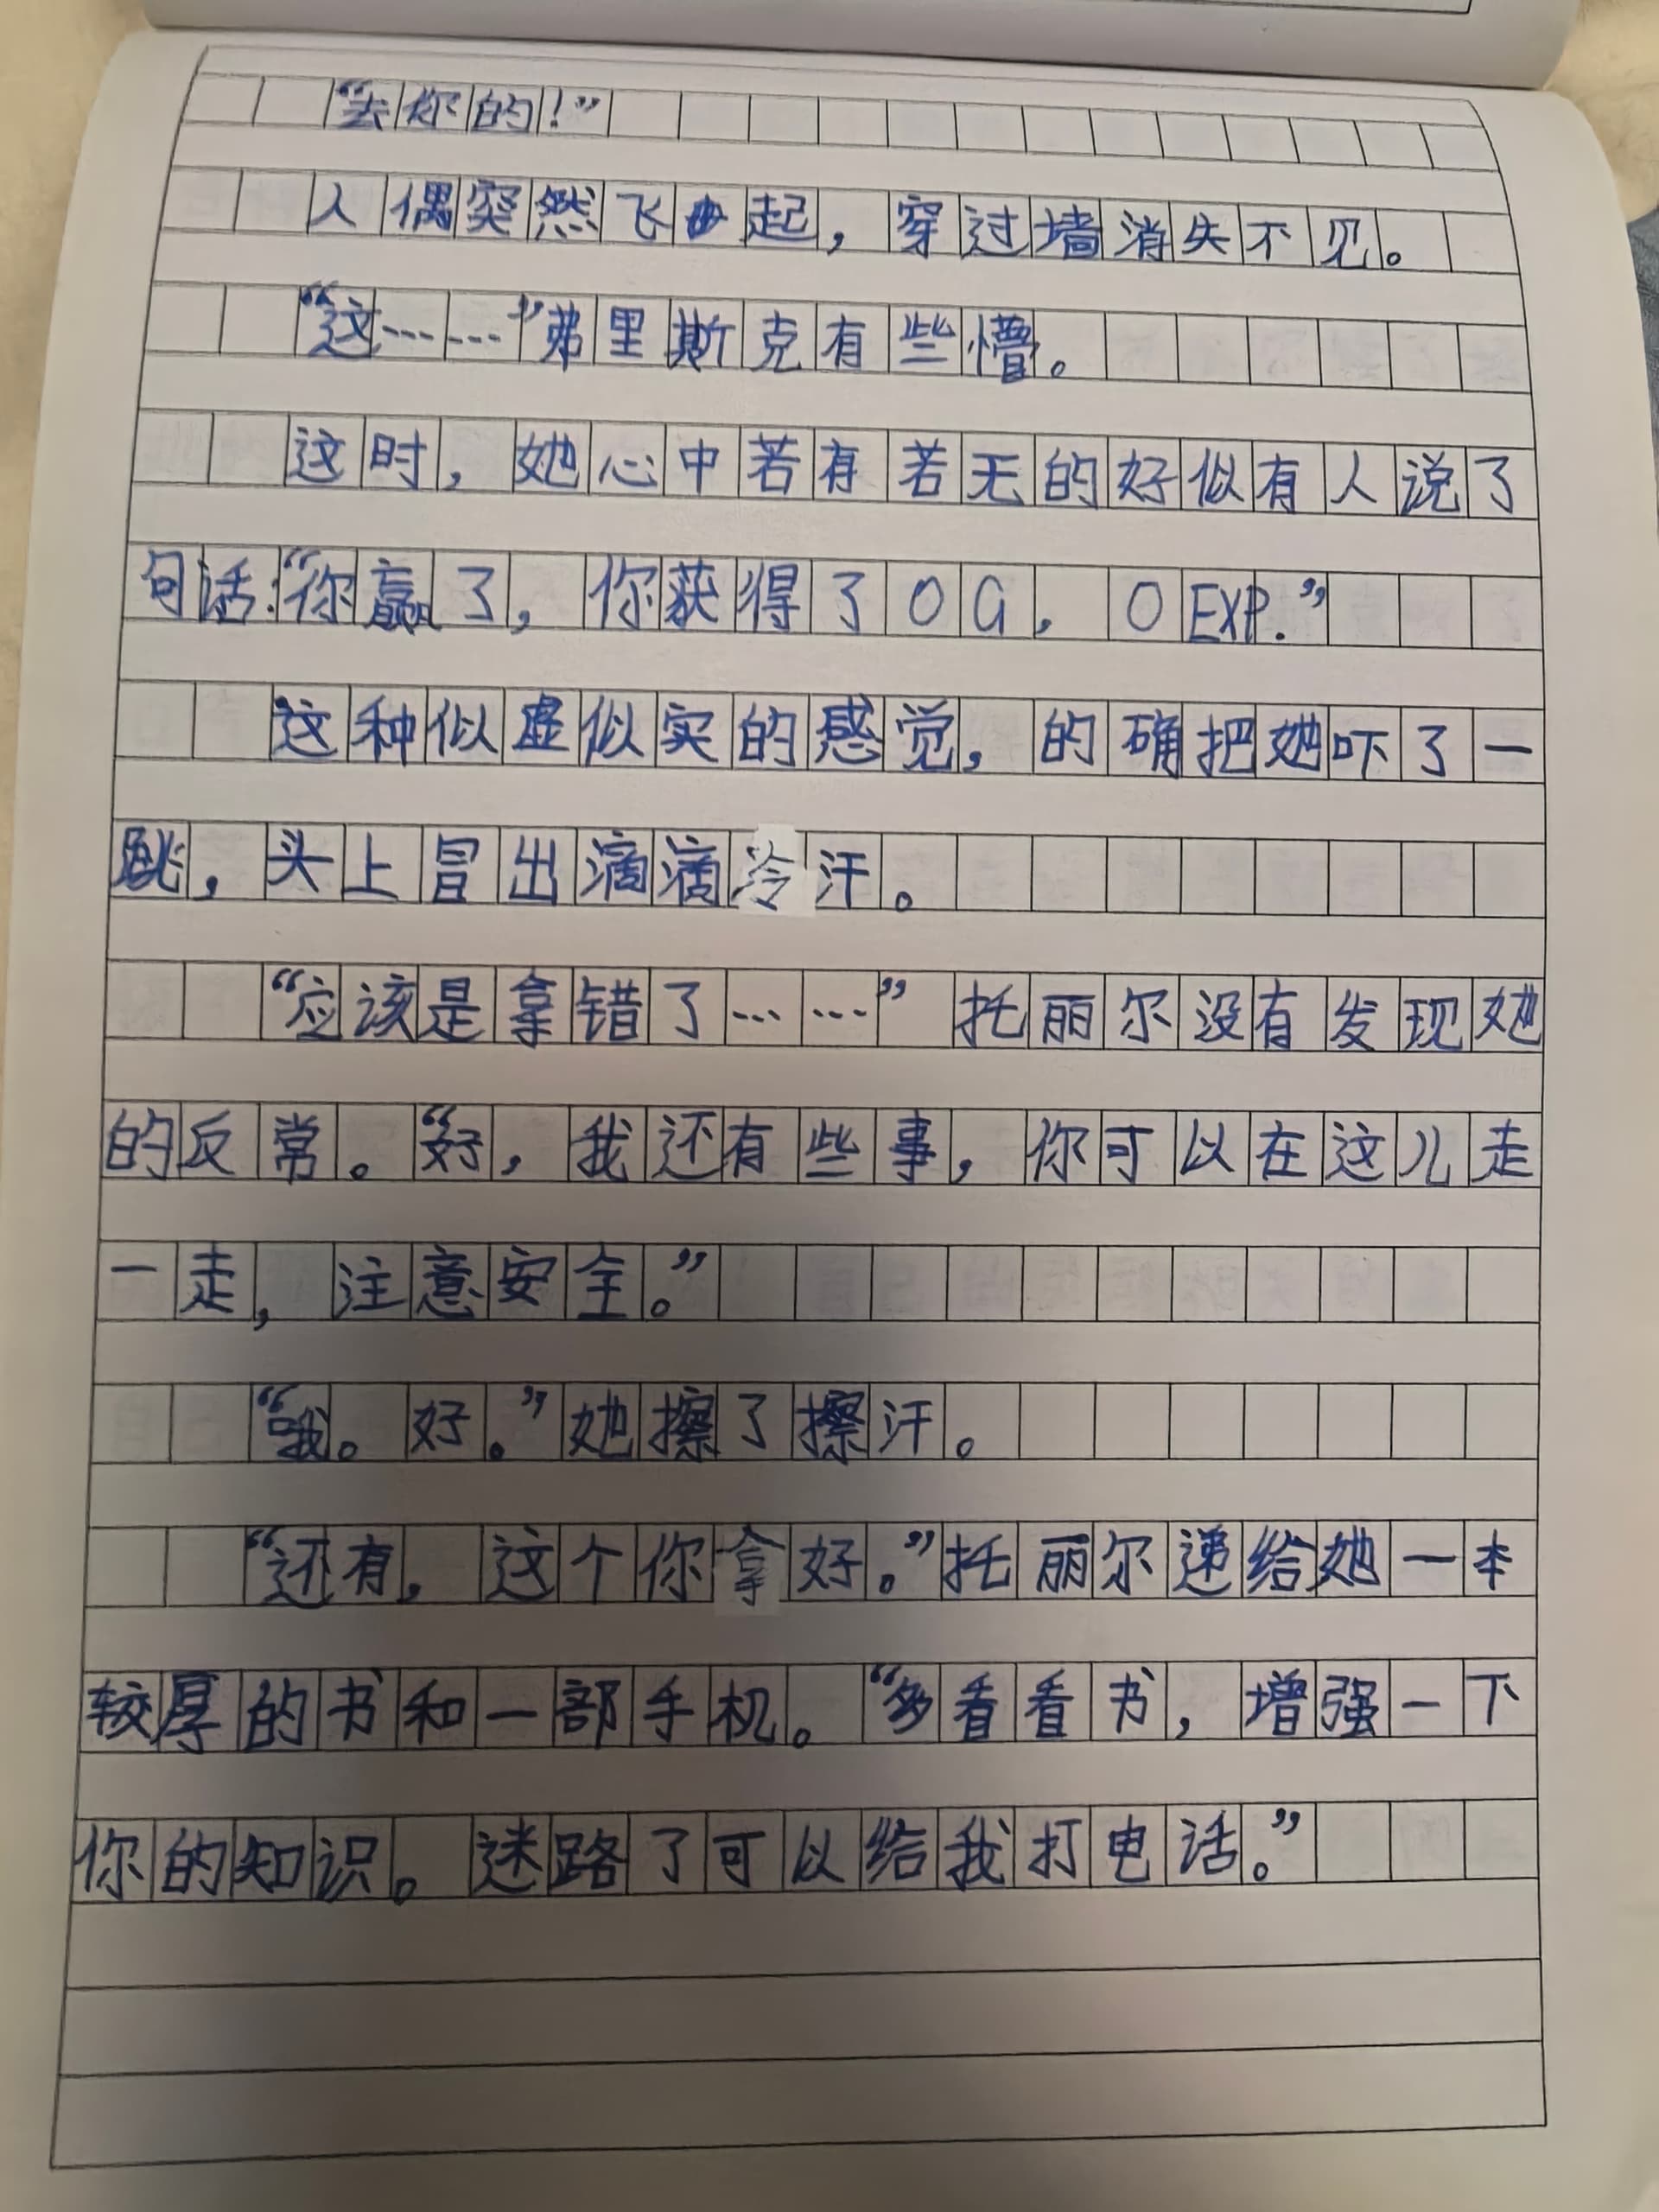 “去你的!”
人偶突然飞起，穿过墙消失不见。
“这……”弗里斯克有些懵。
这时，她心中若有若无的好似有人说了
句话:“你赢了，你获得了0G，0EXP.”
这种似虚似实的感觉，的确把她吓了一
跳，头上冒出滴滴冷汗。
“应该是拿错了……”托丽尔没有发现她
的反常。“好，我还有些事，你可以在这儿走
一走，注意安全。”
“哦。好。”她擦了擦汗。
“还有，这个你拿好。”托丽尔递给她一本
较厚的书和一部手机。“多看看书，增强一下
你的知识。迷路了可以给我打电话。”